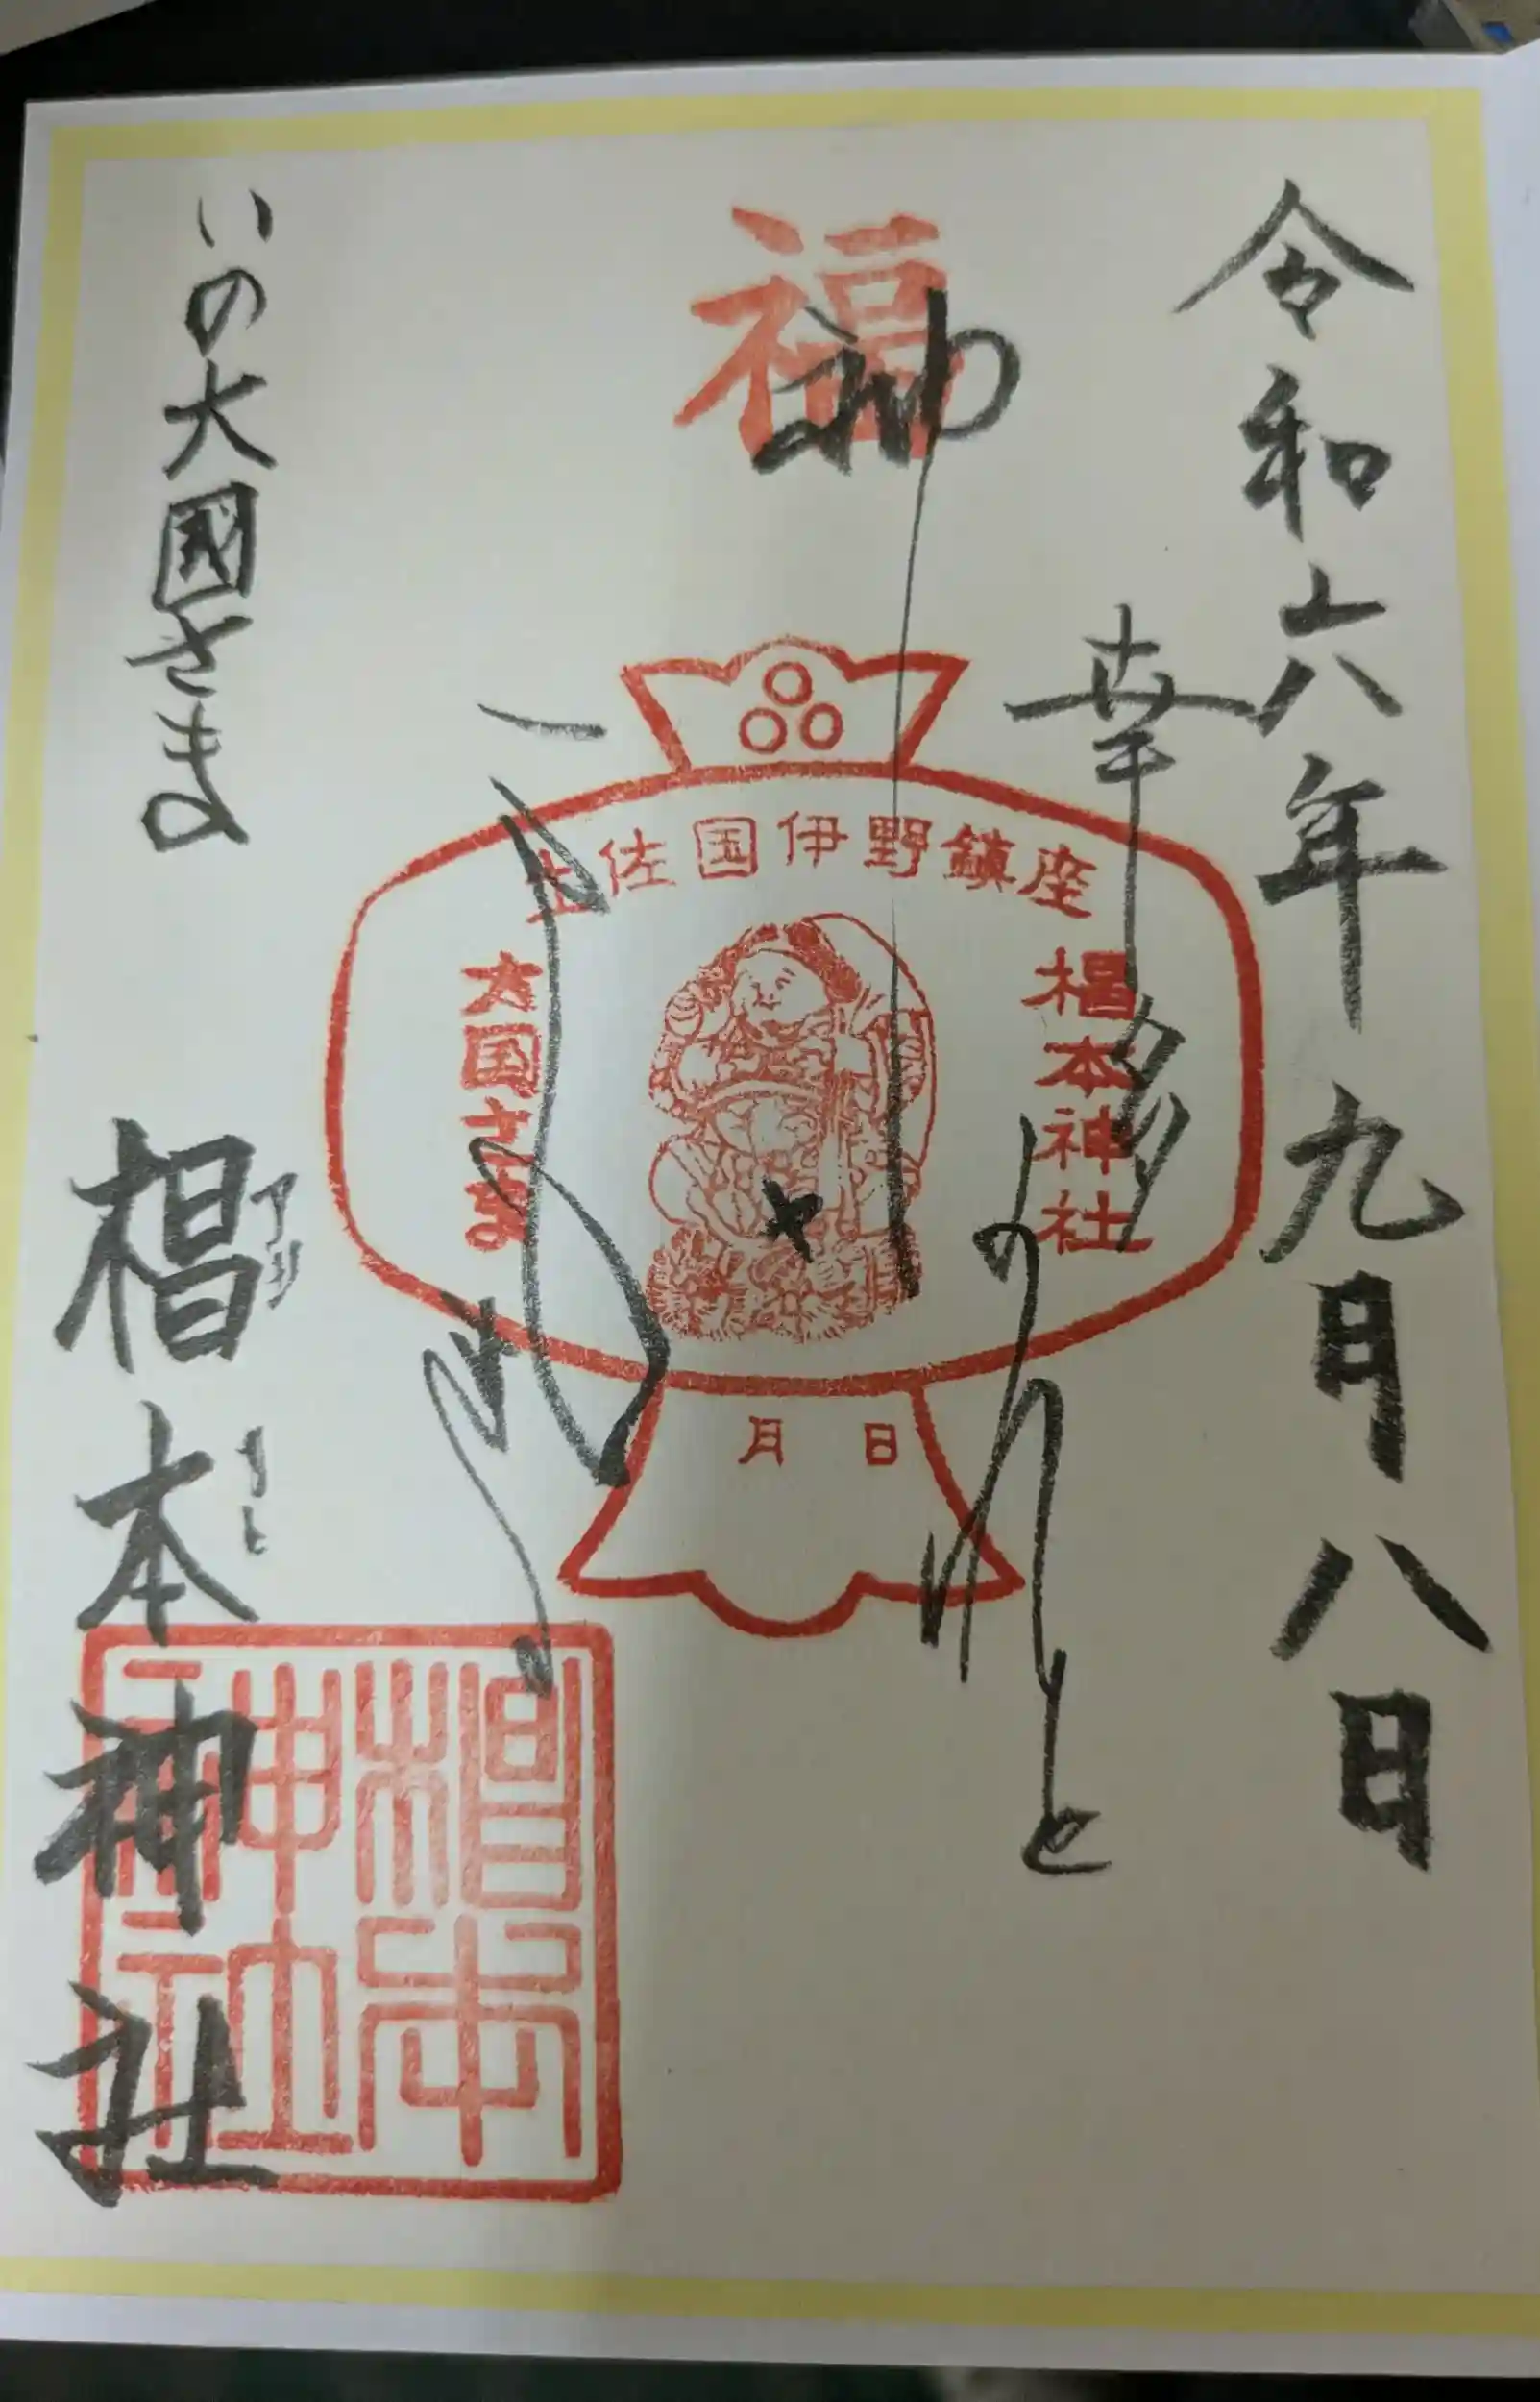 令和六年九月八日
幸多
かれと
福
土佐国伊野鎮座
椙本神社
大国さま
月 日
いの大國さま
椙本神社
すぎ もと
椙本
神社